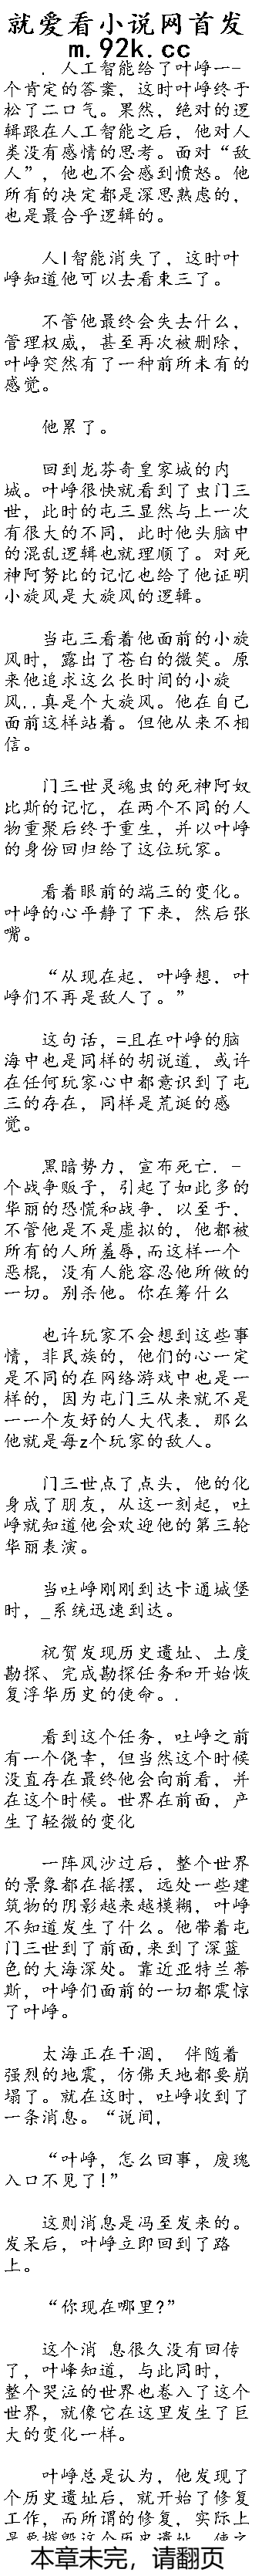 就爱看小说网首发
m.92k.cc
．人工智能给了叶峥一-
个肯定的答案，这时叶峥终于
松了二口气。果然，绝对的逻
辑跟在人工智能之后，他对人
类没有感情的思考。面对“敌
人”，他也不会感到愤怒。他
所有的决定都是深思熟虑的，
也是最合乎逻辑的。
人|智能消失了，这时叶
峥知道他可以去看束三了。
不管他最终会失去什么，
管理权威，甚至再次被删除，
叶峥突然有了一种前所未有的
感觉。
他累了。
回到龙芬奇皇家城的内
城。叶峥很快就看到了虫门三
世，此时的屯三显然与上一次
有很大的不同，此时他头脑中
的混乱逻辑也就理顺了。对死
神阿努比的记忆也给了他证明
小旋风是大旋风的逻辑。
当屯三看着他面前的小旋
风时，露出了苍白的微笑。原
来他追求这么长时间的小旋
风..真是个大旋风。他在自己
面前这样站着。但他从来不相
信。
门三世灵魂虫的死神阿奴
比斯的记忆，在两个不同的人
物重聚后终于重生，并以叶峥
的身份回归给了这位玩家。
看着眼前的端三的变化。
叶峥的心平静了下来，然后张
嘴。
“从现在起．叶峥想．叶
峥们不再是敌人了。”
这句话，=且在叶峥的脑
海中也是同样的胡说道，或许
在任何玩家心中都意识到了屯
三的存在，同样是荒诞的感
觉。
黑暗势力，宣布死亡．-
个战争贩子，引起了如此多的
华丽的恐慌和战争，以至于．
不管他是不是虚拟的，他都被
所有的人所羞辱,而这样一个
恶棍，没有人能容忍他所做的
一切。别杀他。你在筹什么
也许玩家不会想到这些事
情，非民族的，他们的心一定
是不同的在网络游戏中也是一
样的，因为屯门三从来就不是
一一个友好的人大代表．那么
他就是每z个玩家的敌人。
门三世点了点头，他的化
身成了朋友，从这一刻起，吐
峥就知道他会欢迎他的第三轮
华丽表演。
当吐峥刚刚到达卡通城堡
时，_系统迅速到达。
祝贺发现历史遗址、土度
勘探、完成勘探任务和开始恢
复浮华历史的使命。.
看到这个任务，吐峥之前
有一个侥幸，但当然这个时候
没直存在最终他会向前看，并
在这个时候。世界在前面，产
生了轻微的变化
一阵风沙过后，整个世界
的景象都在摇摆，远处一些建
筑物的阴影越来越模糊，叶峥
不知道发生了什么。他带着屯
门三世到了前面,来到了深蓝
色的大海深处。靠近亚特兰蒂
斯，叶峥们面前的一切都震惊
了叶峥。
太海正在干涸， 伴随着
强烈的地震，仿佛天地都要崩
塌了。就在这时，吐峥收到了
一条消息。“说间，
“叶峥，怎么回事，废瑰
入口不见了!”
这则消息是冯至发来的。
发呆后，叶峥立即回到了路
上。
“你现在哪里?”
这个消 息很久没有回传
了，叶峰知道，与此同时，
整个哭泣的世界也卷入了这个
世界，就像它在这里发生了巨
大的变化一样。
叶峥总是认为，他发现了
个历史遗址后，就开始了修复
工作，而所谓的修复，实际上
本章未完，请翻页